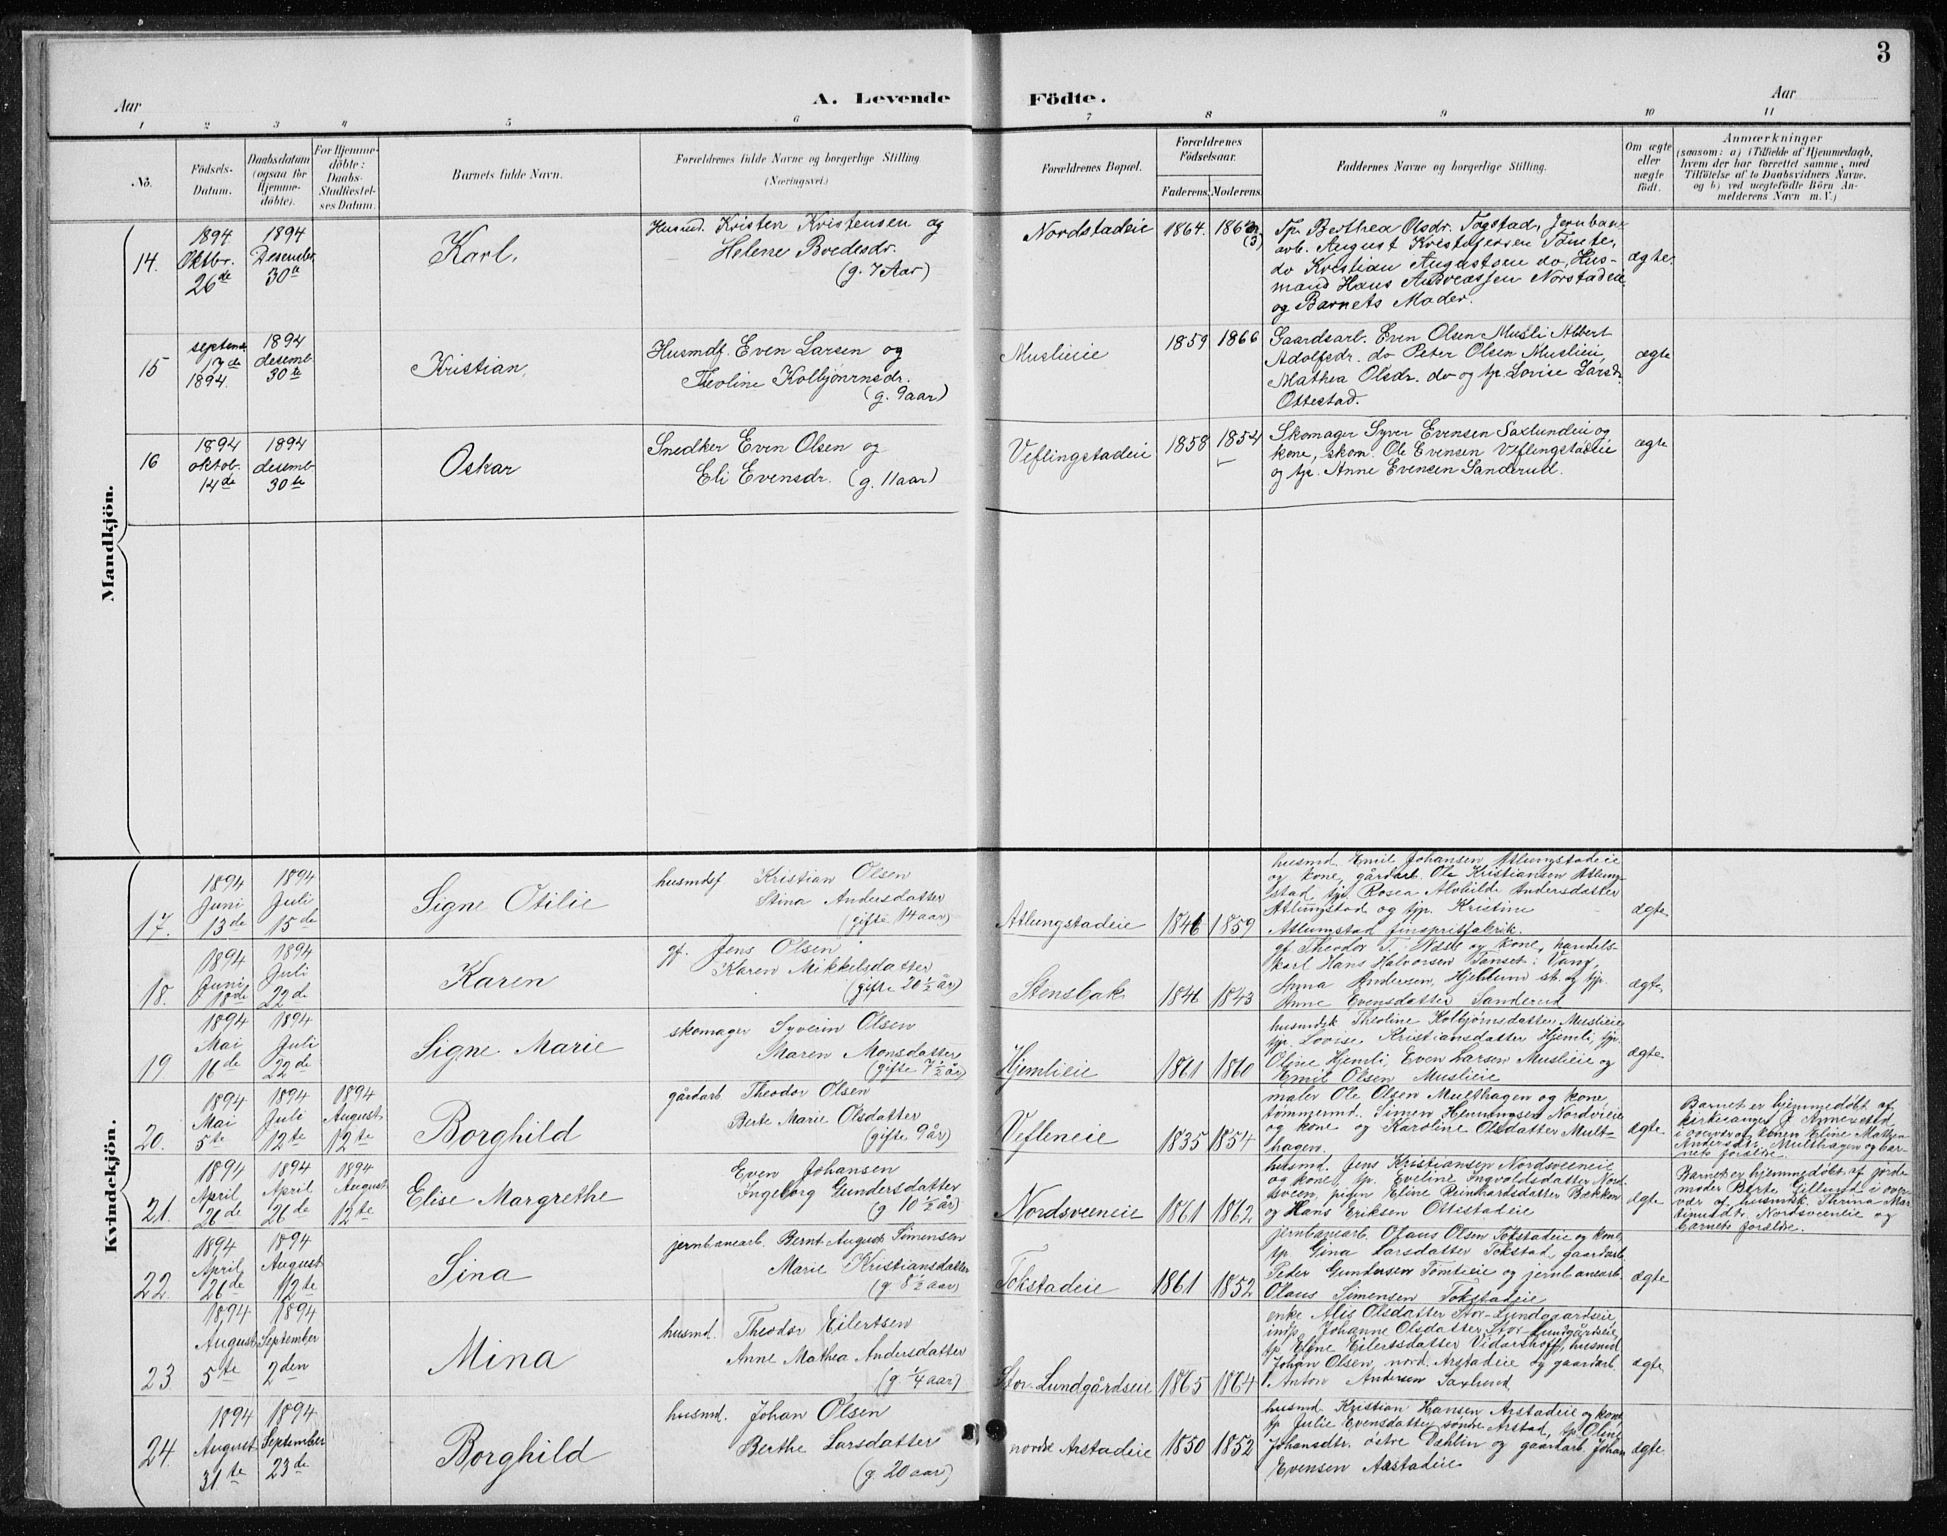 3
Aar
A. Levende Födte.
Aar
1 2 3 4 5 6 7 8 9 10 11
No.
Födsels-
Datum.
Daabsdatum
(ogsaa for
Hjemme-
döbte).
For Hjemme-
döbte:
Daabs-
Stadfæstel-
ses Datum.
Barnets fulde Navn.
Forældrenes fulde Navne og borgerlige Stilling
(Næringsvei.)
Forældrenes Bopæl.
Forældrenes
Födselsaar.
Faderens. Moderens.
Faddernes Navne og borgerlige Stilling.
Om ægte
eller
uægte
födt.
Anmærkninger
(saasom: a) i Tilfælde af Hjemmedaab,
hvem der har forrettet samme, med
Tilföielse af to Daabsvidners Navne.
og b) ved uægtefödte Börn An-
melderens Navn m. V.)
Mandkjön.
14.
1894
Oktbr.
26de
1894
Desember
30te
Karl.
Husmd. Kristen Kristensen og
Helene Bredesdr.
(g. 7 Aar)
Nordstadeie
1864.
(3)
Tp. Berthea Olsdr. Togstad, Jernban-
arb. August Kristofersen Tomte,
do Kristian Augustsen do, Hus-
mand Hans Andreassen Norstadeie
og Barnets Moder.
ægte.
15
septemb
17de
1894.
1894
desemb
30te
Kristian.
Husmdf. Even Larsen og
Theoline Kolbjørnrnsdr.
(g. 9 aar)
Muslieie
1859
1866
Gaardsarb. Even Olsen Musli Albert
Adolfsdr. do Peter Olsen Muslieie,
Mathea Olsdr. do og tp. Lovise Larsdr.
Ottestad.
ægte
16
1894
oktob.
14de
1894
desemb
30te
Oskar
Snedker Even Olsen og
Eli Evensdr. (g. 11 aar)
Veflingstadeie
1858
1854
Skomager Syver Evensen Saxlundeie og
kone, skom. Ole Evensen Veflingstadeie
og tp. Anne Evensen Sanderud.
ægte
Kvindekjön.
17.
1894
Juni
13de
1894
Juli
15de
Signe Otilie
husmdsf Kristian Olsen
Stina Andersdatter
(gifte 14 aar)
Atlungstadeie
1846
1859
husmd. Emil Johansen Atlungstadeie
og kone, gårdarb. Ole Kristiansen Atlung-
stad, tjp. Rosea Alvhilde Andersdatter
Atlungstad og tjp. Kristine
Atlungstad finspritfabrik.
ægte
18.
1894
Juni
18de
1894
Juli
22de
Karen
gf. Jens Olsen
Karen Mikkelsdatter
(gifte 20 ½ år)
Stensbak
1846
1843
gf. Theodor T. og kone, handels-
karl Hans Halvorsen Tanset i Vang,
Anna Andersen, Hjellum st. og tjp.
Anne Evensdatter Sanderud
ægte
19
1894
Mai
16de
1894
Juli
22de
Signe Marie
skomager Syverin Olsen
Maren Monsdatter
(gifte 7 ½ år)
Hjemlieie
1861
1860
husmdsk Theoline Kolbjørnsdatter Muslieie
tjp. Lovise Kristiansdatter Hjemli, tjp.
Oline Hjemli, Even Larsen Muslieie og
Emil Olsen Muslieie
ægte
20.
1894
Mai
5te
1894
Juli
12te
1894
August
12te
Borghild
gårdarb Theodor Olsen
Berte Marie Olsdatter
(gifte 9 år)
Vefleneie
1835
1854
maler Ole Olsen Multhagen og kone,
tømmermd. Simen Henningsen Nordvieie
og kone og Karoline Olsdatter Mult-
hagen.
ægte
Barnet er hjemmedøbt af
kirkesanger J. Annexstad
i overvær af konen Eline Mathea
Andersdtr. Multhagen og bar-
nets forældre.
21.
1894
April
26de
1894
April
26de
1894
August
12te
Elise Margrethe
Even Johansen
Ingeborg Gundersdatter
(g 10 ½ år)
Nordsveeneie
1861
1862
husmd. Jens Kristiansen Nordsveeneie
og kone, tp. Eveline Ingvoldsdatter Nord-
sveen, pigen Eline Reinhardsdatter Bækken
og Hans Eriksen Ottestadeie
ægte
Barnet er hjemmedøbt af jorde-
moder Berte Gillund i over-
vær af husmdsk. Therina Mar-
tinusdtr. Nordsveeneie og
barnets forældre.
22.
1894
April
26de
1894
August
12te
Sina
jernbanearb. Bernt August Simensen
Marie Kristiansdatter
(g. 8 ½ aar)
Tokstadeie
1861
1852
jernbanearb. Olaus Olsen Tokstadeie og kone
tp. Gina Larsdatter Tokstad, gaardarb.
Peder Gundersen Tomteie og jernbanearb.
Olaus Simensen Tokstadeie
ægte
23
1894
August
5te
1894
September
2den
Mina
husmd. Theodor Eilertsen
Anne Mathea Andersdatter
(g ¼ aar)
Stor-Lundgårdseie
1865
1864
enke Alis Olsdatter Stor-Lundgaardseie,
indp. Johanne Olsdatter Stor Lundgårdseie,
tp Eline Eilertsdatter Vidarshoff, husmd
Johan Olsen nord. Arstadeie og gaardarb.
Anton Andersen Saxlund
ægte
24.
1894
August
31te
1894
September
23de
Borghild
husmd. Johan Olsen
Berthe Larsdatter
(g. 20 aar)
nordre Arstadeie
1850
1852
husmd. Kristian Hansen Arstadeie og kone
tp Julie Evensdatter søndre Arstad, tp Oline
Johansdtr. østre Dæhlin og gaardarb. Johan
Evensen Arstadeie
ægte